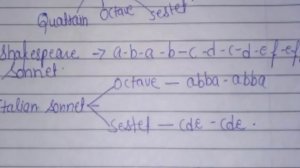 Quatrain Octave Sestet
Shakespeare → a-b-a-b-c-d-c-d-e-f-ef
Sonnet.
Octave — abba-abba
Italian Sonnet
Sestet — cde-cde.